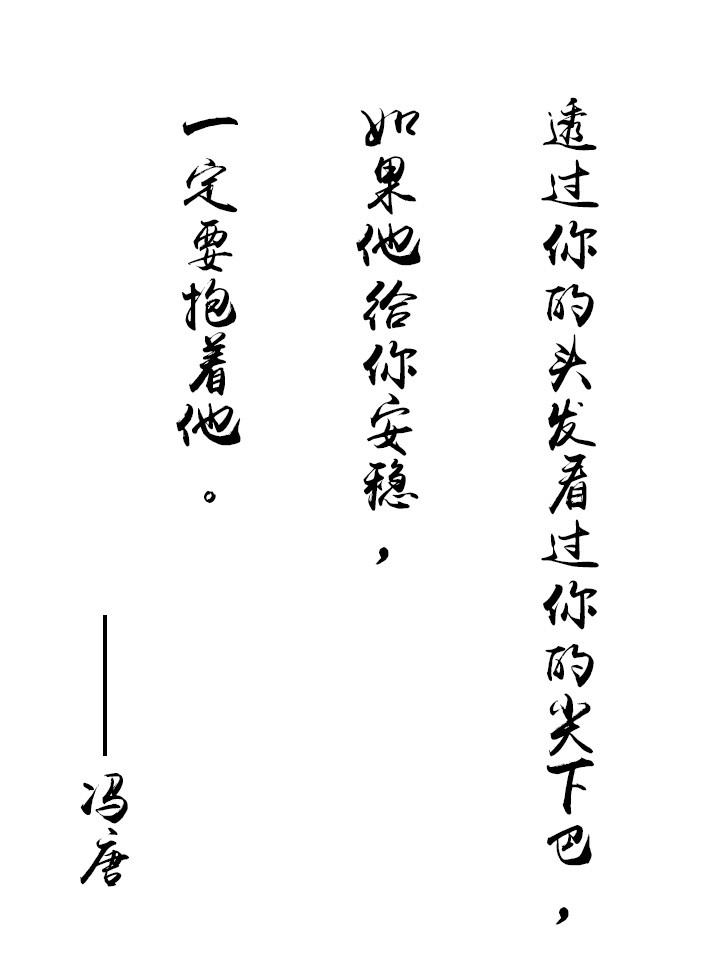 透过你的头发看过你的尖下巴，
如果他给你安稳，
一定要抱着他。
——冯唐